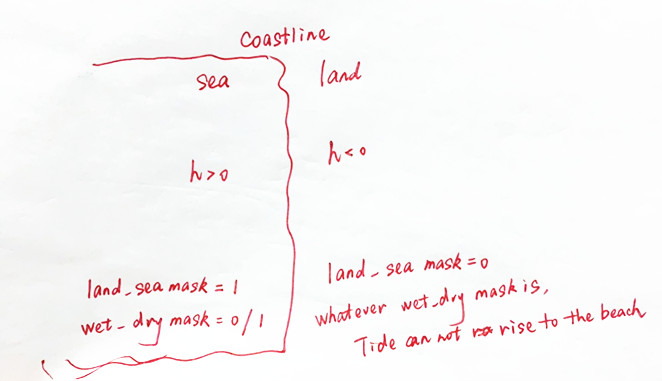 Coastline
sea
land
h>0
h<0
land_sea mask = 1
wet_dry mask = 0/1
land_sea mask = 0
whatever wet_dry mask is,
Tide can not rise to the beach